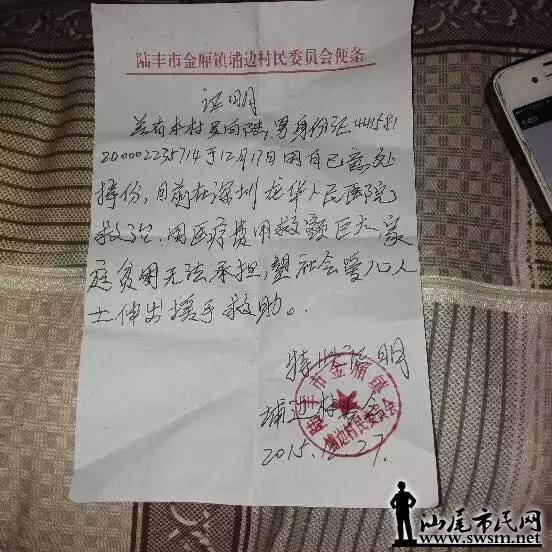 陆丰市金厢镇埔边村民委员会便条
证明
兹有本村吴向陆,男身份证44158
1200002235714于12月17日因自己意处
摔份,目前在深圳龙华人民医院
救治.因医疗费用数额巨大,家
庭贫困无法承担,望社会爱心人
士伸出援手救助。
特此证明
埔边村委会
2015.12.27.
陆丰市金厢镇
埔边村民委员会
汕尾市民网
www.swsm.net